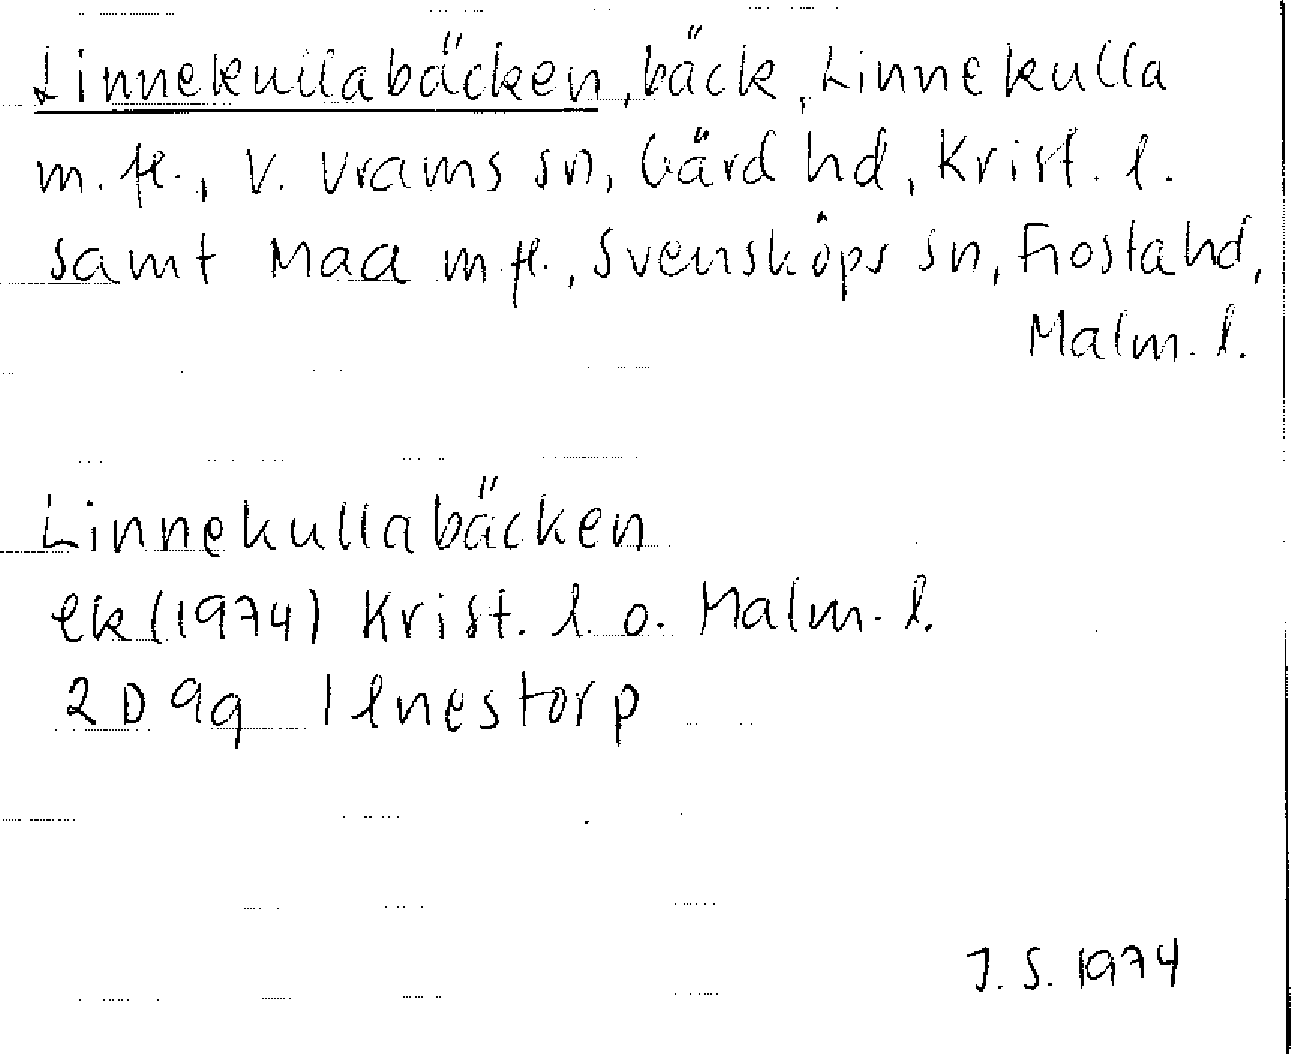 Linnekullabäcken, bäck, Linnekulla
m. fl., V. Vrams sn, Gärd hd, Krist. l.
samt Maa m fl., Svensköps sn, Frosta hd,
Malm. l.
Linnekullabäcken
ek (1974) Krist. l. o. Malm. l.
2 D 9g Ilnestorp
J. S. 1974